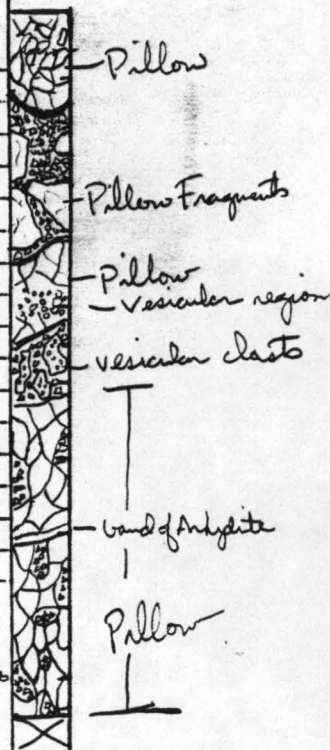 Pillow
Pillow Fragments
Pillow
- Vesicular region
vesicular clasts
band of Anhydrite
Pillow